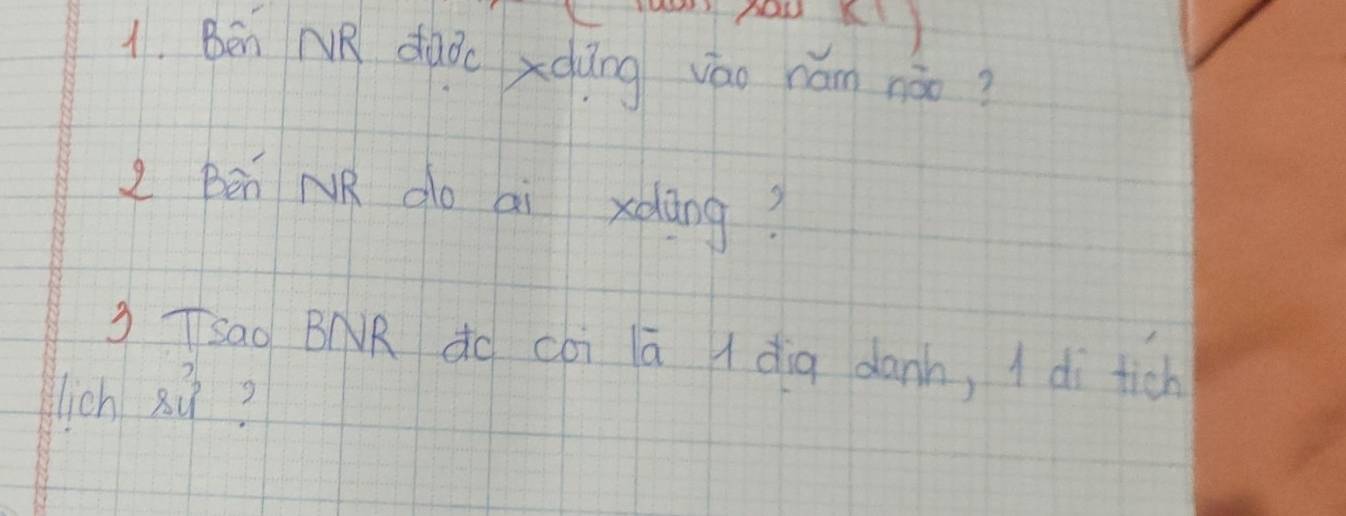 ( Tuần sau KT )
1. Bến NR được xdựng vào năm nào ?
2 Bến NR do ai xdựng ?
3 Tsao BNR đc coi là 1 địa danh, 1 di tích
lịch sử ?